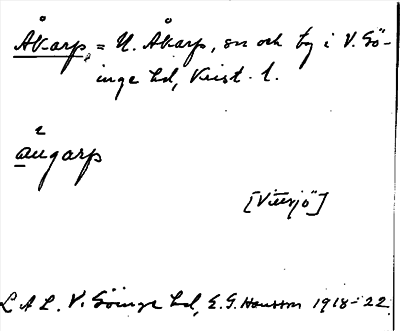 Åkarp, = N. Åkarp, sn och by i V. Gö-
inge hd, Krist. l.
2
åugarp
[Vittsjö]
L A L. V. Göinge hd, E.G. Hansson 1918-22